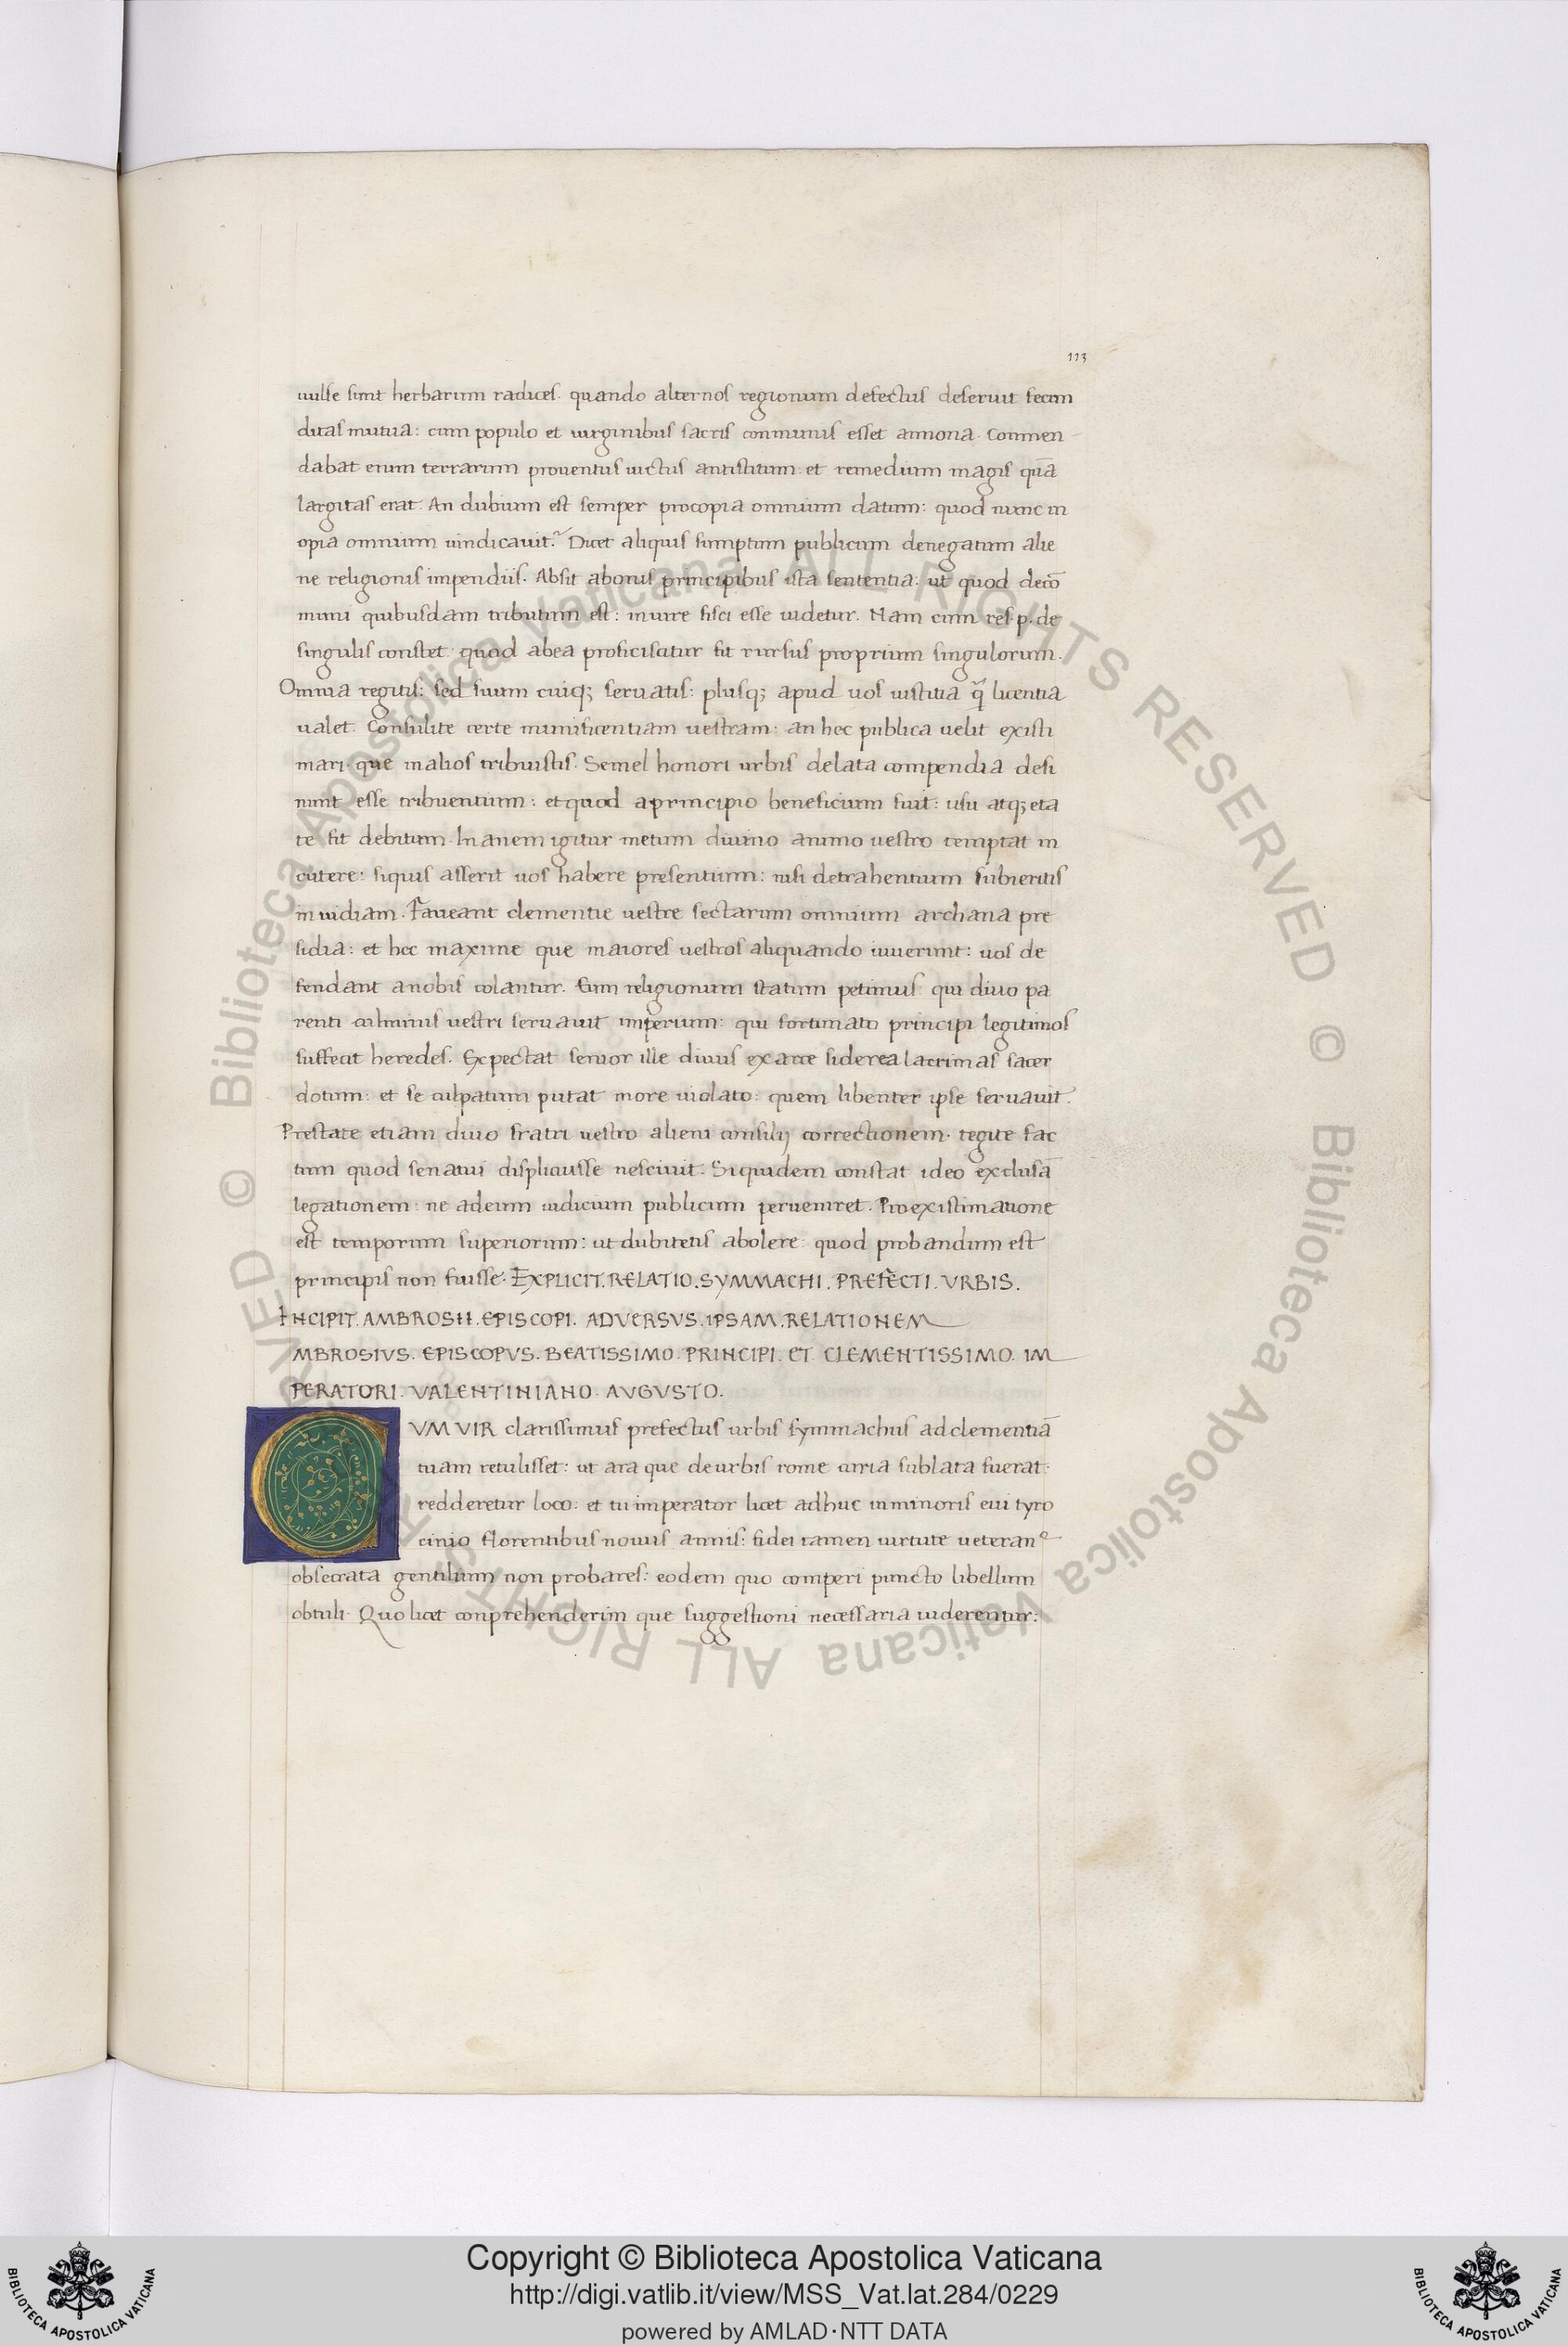 113
uulse sunt herbarum radices. quando alternos regionum defectus deseruit fecun
ditas mutua: cum populo et uirginibus sacris conmunis esset annona. Conmen
dabat enim terrarum prouentus uictus antistitum: et remedium magis quā
largitas erat. An dubium est semper procopia omnium datum: quod nunc in
opia omnium uindicauit? Dicet aliquis sumptum publicum denegatum alie
ne religionis impendiis. Absit abonis principibus ista sententia: ut quod decō
muni quibusdam tributum est: iniure fisci esse uidetur. Nam cum res.p. de
singulis constet quod abea proficiscitur fit rursus proprium singulorum.
Omnia regitis: sed suum cuiq; seruatis: plusq; apud uos iustitia q̄ licentia
ualet. Consulite certe munificentiam uestram: an hec publica uelit existi
mari. que inalios tribuistis. Semel honori urbis delata compendia desi
nunt esse tribuentium: et quod aprincipio beneficium fuit: usu atq; eta
te fit debitum. Inanem igitur metum diuino animo uestro temptat in
cutere: siquis asserit uos habere presentium: nisi detrahentium subieritis
inuidiam. Faueant clementie uestre sectarum omnium archana pre
sidia: et hec maxime que maiores uestros aliquando iuuerunt: uos de
fendant anobis colantur. Eum religionum statum petimus qui diuo pa
renti culminis uestri seruauit imperium: qui fortunato principi legitimos
suffecit heredes. Expectat senior ille diuus exarce siderea lacrimas sacer
dotum: et se culpatum putat more uiolato: quem libenter ipse seruauit.
Prestate etiam diuo fratri uestro alieni consilij correctionem. tegite fac
tum quod senatui displicuisse nesciuit. Siquidem constat ideo exclusā
legationem: ne adeum iudicium publicum perueniret. Proexistimatione
est temporum superiorum: ut dubitetis abolere: quod probandum est
principis non fuisse. EXPLICIT. RELATIO. SYMMACHI. PREFECTI. VRBIS.
INCIPIT. AMBROSII. EPISCOPI. ADVERSVS. IPSAM. RELATIONEM
MBROSIVS. EPISCOPVS. BEATISSIMO. PRINCIPI. ET. CLEMENTISSIMO. IM
PERATORI. VALENTINIANO. AVGVSTO.
CVM VIR clarissimus prefectus urbis symmachus adclementiā
tuam retulisset: ut ara que deurbis rome curia sublata fuerat:
redderetur loco: et tu imperator licet adhuc inminoris eui tyro
cinio florentibus nouus annis: fidei tamen uirtute ueteranº
obsecrata gentilium non probares: eodem quo comperi puncto libellum
obtuli. Quo licet conprehenderim que suggestioni necessaria uiderentur:
© Biblioteca Apostolica Vaticana ALL RIGHTS RESERVED
© Biblioteca Apostolica Vaticana ALL RIGHTS RESERVED
Copyright © Biblioteca Apostolica Vaticana
http://digi.vatlib.it/view/MSS_Vat.lat.284/0229
powered by AMLAD·NTT DATA
BIBLIOTECA APOSTOLICA VATICANA
BIBLIOTECA APOSTOLICA VATICANA